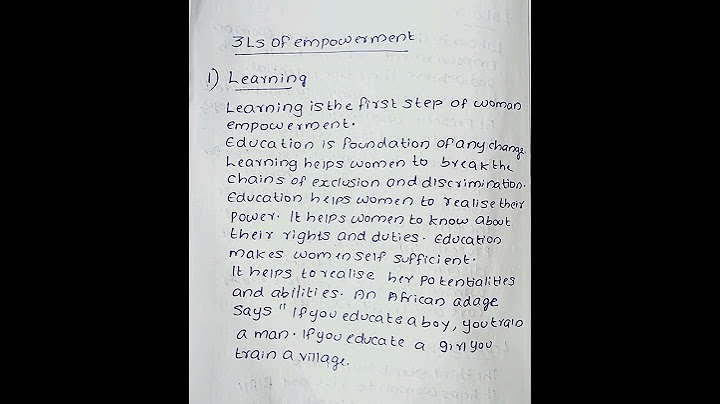 3Ls of empowerment
1) Learning
Learning is the first step of woman
empowerment.
Education is foundation of any change
Learning helps women to break the
chains of exclusion and discrimination.
Education helps women to realise their
power. It helps women to know about
their rights and duties. Education
makes women self sufficient.
It helps to realise her potentialities
and abilities. An African adage
says " If you educate a boy, you train
a man. If you educate a girl you
train a village.